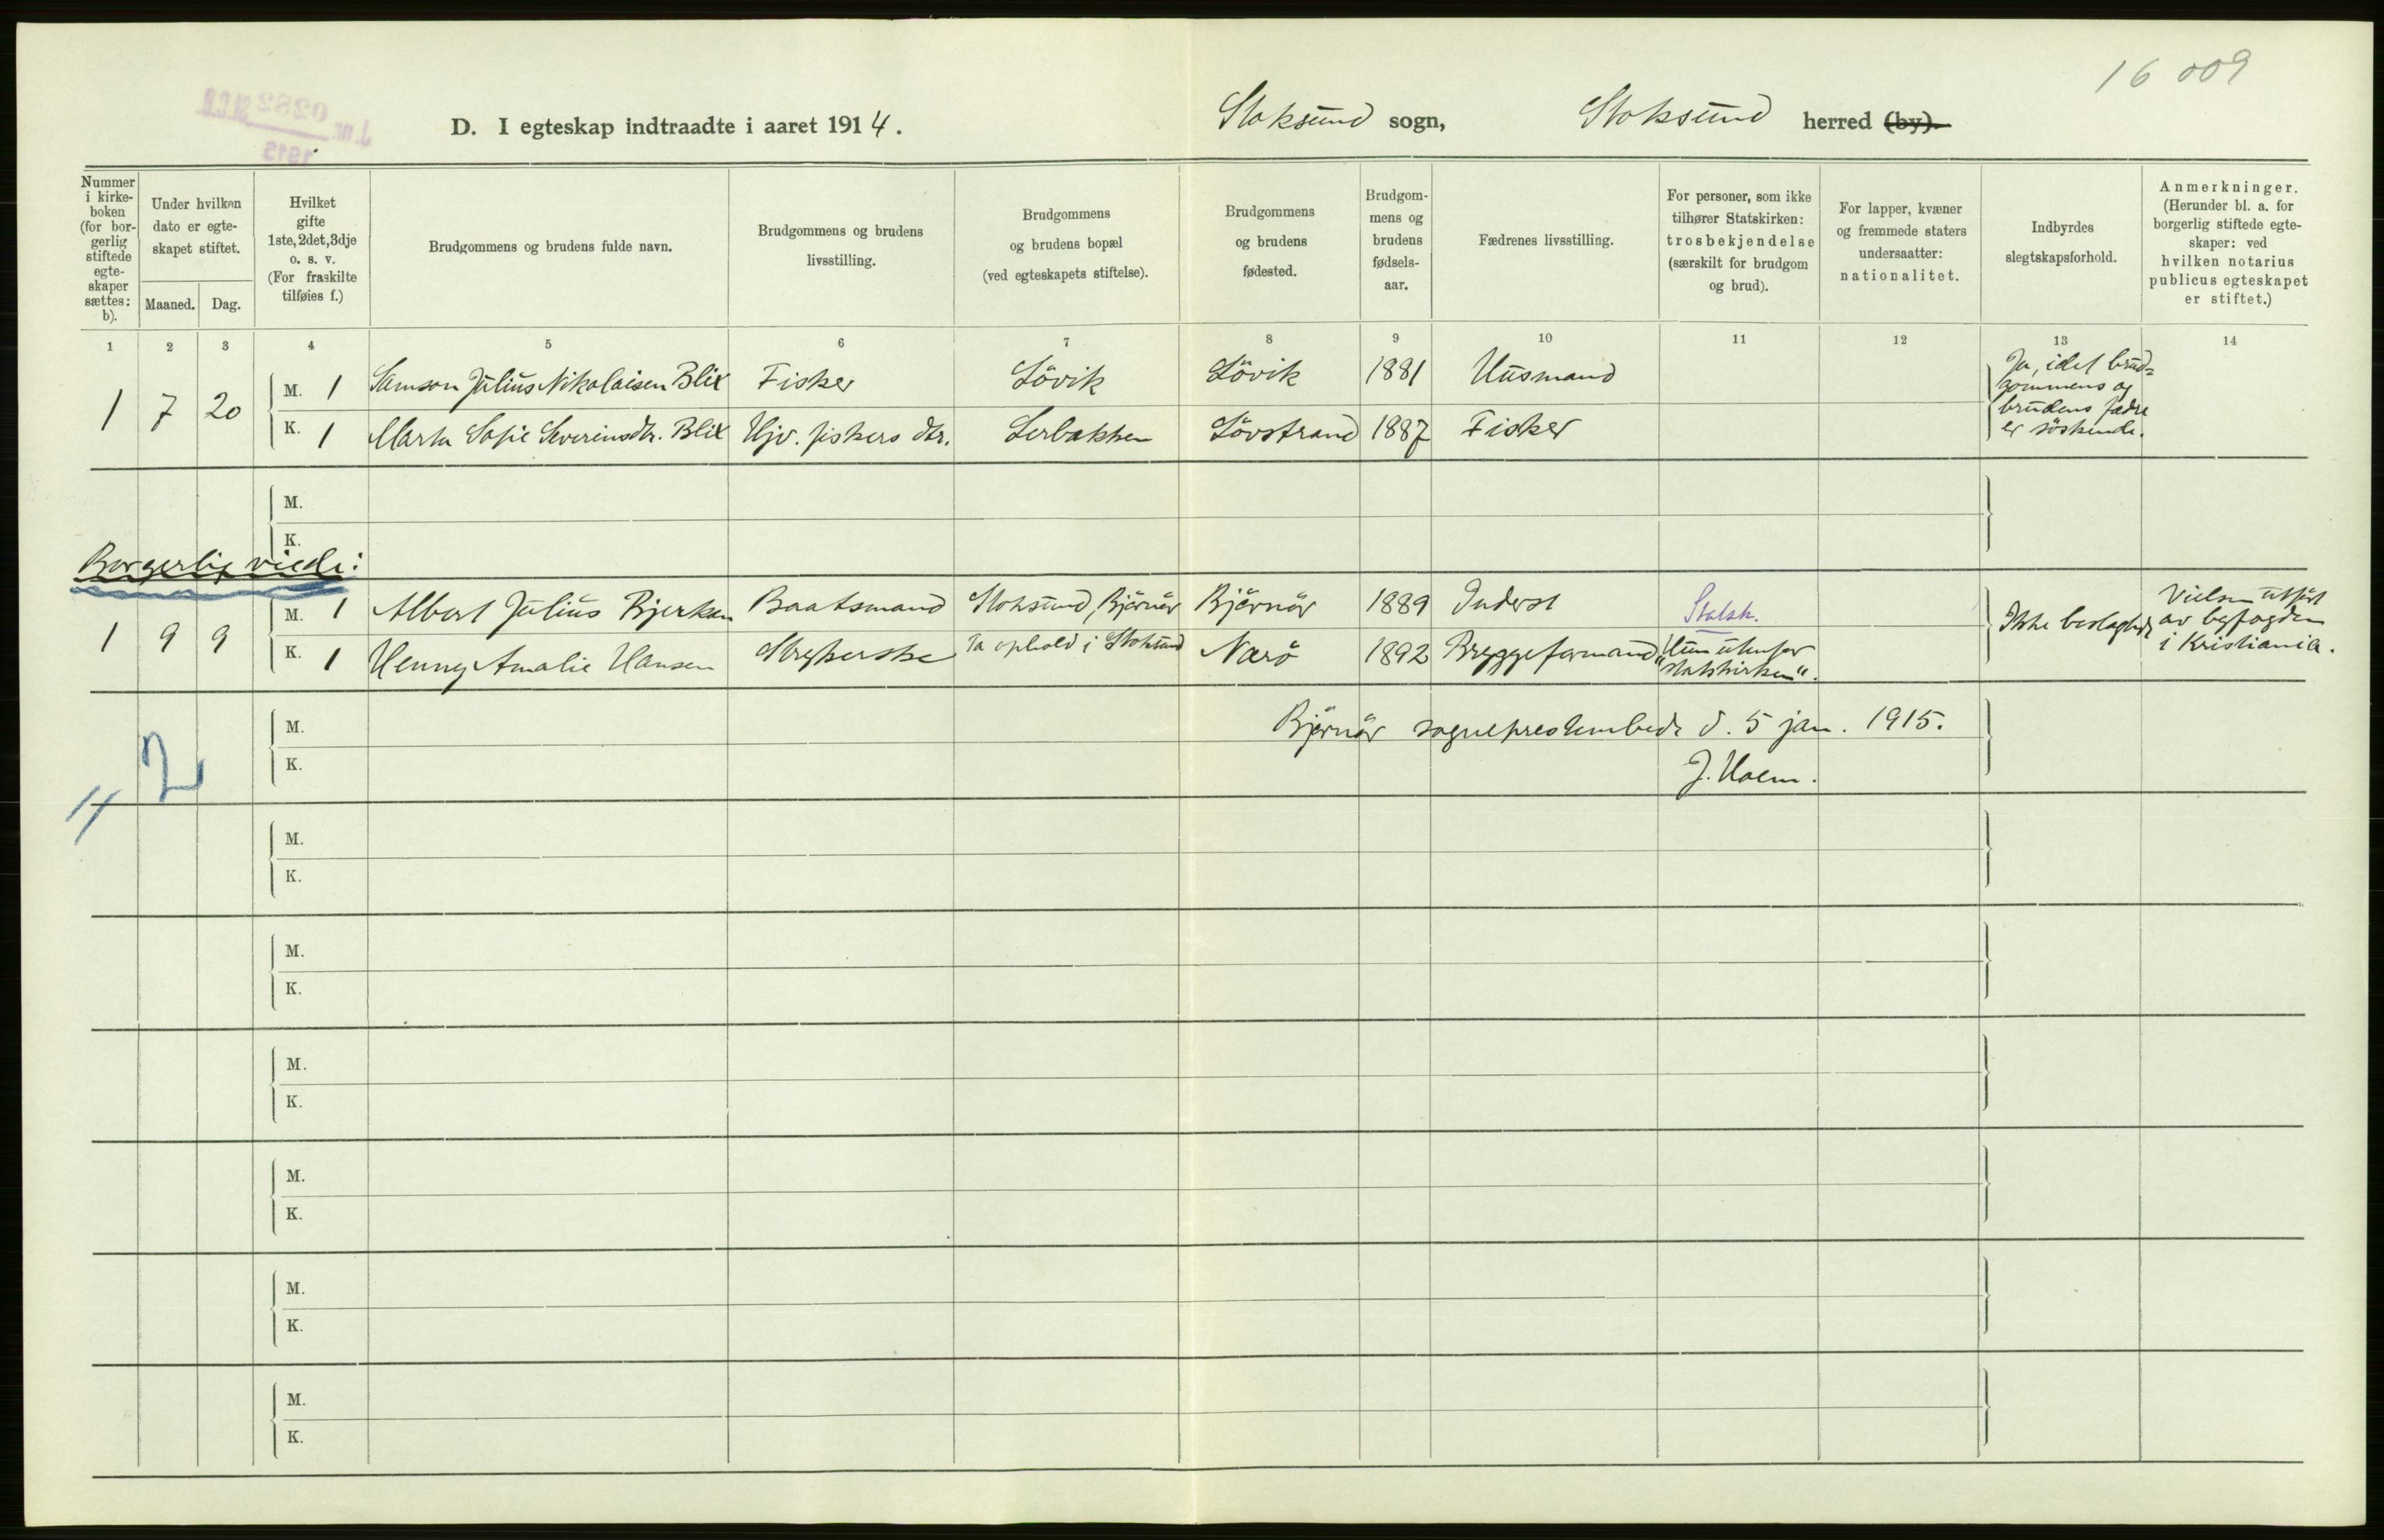 16 009
D. I egteskap indtraadte i aaret 1914. Stoksund sogn, Stoksund herred (by).
Nummer i kirkeboken (for borgerlig stiftede egteskaper sættes: b).
Under hvilken dato er egteskapet stiftet.
Maaned. Dag.
Hvilket gifte 1ste, 2det, 3dje o. s. v. (For fraskilte tilføies f.)
Brudgommens og brudens fulde navn.
Brudgommens og brudens livsstilling.
Brudgommens og brudens bopæl (ved egteskapets stiftelse).
Brudgommens og brudens fødested.
Brudgommens og brudens fødselsaar.
Fædrenes livsstilling.
For personer, som ikke tilhører Statskirken: trosbekjendelse (særskilt for brudgom og brud).
For lapper, kvæner og fremmede staters undersaatter: nationalitet.
Indbyrdes slegtskapsforhold.
Anmerkninger. (Herunder bl. a. for borgerlig stiftede egteskaper: ved hvilken notarius publicus egteskapet er stiftet.)
1 2 3 4 5 6 7 8 9 10 11 12 13 14
1 7 20 M. 1 Samson Julius Nikolaisen Blix Fisker Lövik Lövik 1881 Husmand
K. 1 Marta Sofie Severinsdtr. Blix Hjv. fiskers dtr. Lerbakken Lövstrand 1887 Fisker
Ja, idet brud-
gommens og
brudens fædre
er söskende.
M.
K.
Borgerlig viede:
1 9 9 M. 1 Albert Julius Bjerkan Baatsmand Stoksund, Björnör Björnör 1889 Inderst Statsk.
K. 1 Henny Amalie Hansen Strykerske Ta ophold i Stoksund Nærö 1892 Bryggeformand "Hun utenfor
statskirken".
Ikke beslegtede
Vielsen utfört
av byfogden
i Kristiania.
M. Björnör sogneprestembede d. 5 jan. 1915.
K. J. Holm.
2
M.
K.
M.
K.
M.
K.
M.
K.
M.
K.
M.
K.